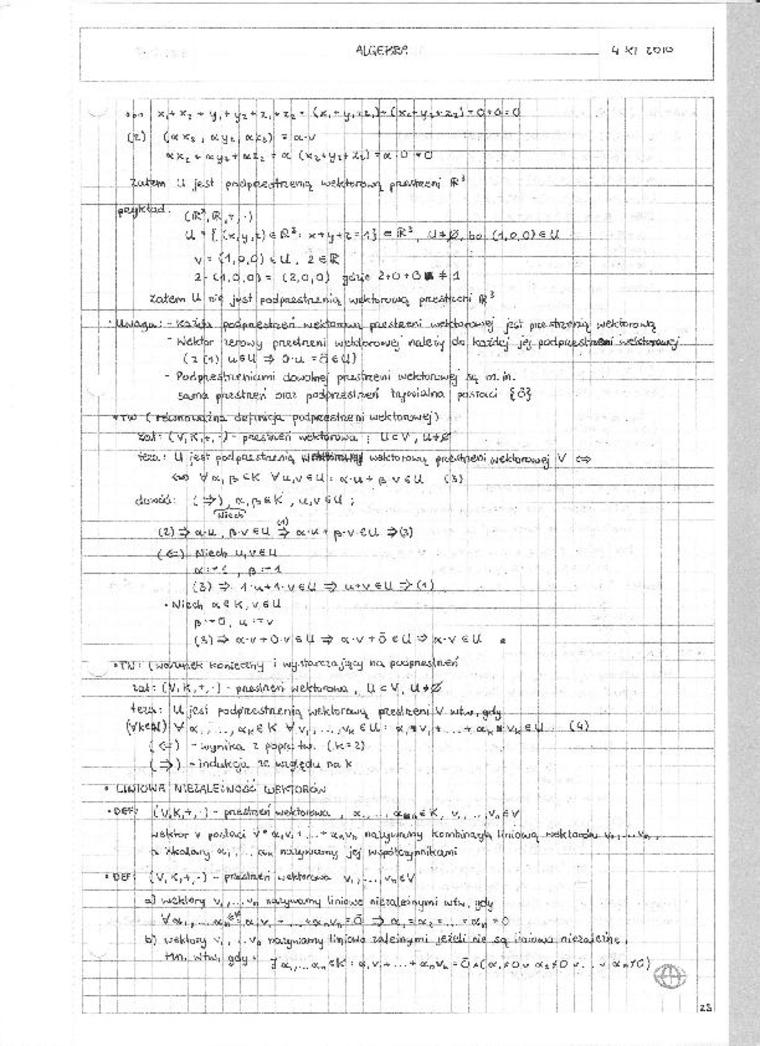 ALGEBRA 4 XI 2010
x₁+x₂+y₁+y₂+z₁+z₂ = (x₁+y₁+z₁)+(x₂+y₂+z₂)=0+0=0
(2) (αx₂, αy₂, αz₂) = α·v
αx₂+αy₂+αz₂ = α (x₂+y₂+z₂) = α·0=0
Zatem U jest podprzestrzenią wektorową przestrzeni ℝ³
przykład: (ℝ³,ℝ,+,·)
U = {(x,y,z)∈ℝ³: x+y+z=1} ⊂ ℝ³, U≠∅, bo (1,0,0)∈U
v=(1,0,0)∈U, 2∈ℝ
2·(1,0,0) = (2,0,0) gdzie 2+0+0 ≠ 1
Zatem U nie jest podprzestrzenią wektorową przestrzeni ℝ³
• Uwaga: - Każda podprzestrzeń wektorowa przestrzeni wektorowej jest przestrzenią wektorową
- Wektor zerowy przestrzeni wektorowej należy do każdej jej podprzestrzeni wektorowej
(z (1) u∈U ⇒ 0·u = ō∈U)
- Podprzestrzeniami dowolnej przestrzeni wektorowej są m.in.
sama przestrzeń oraz podprzestrzeń trywialna postaci {ō}
• TW (równoważna definicja podprzestrzeni wektorowej)
zał: (V,K,+,·) - przestrzeń wektorowa ; U⊂V, U≠∅
teza: U jest podprzestrzenią wektorową przestrzeni wektorowej V ⇔
⇔ ∀α,β∈K ∀u,v∈U: α·u+β·v∈U (3)
dowód: (⇒) α,β∈K, u,v∈U ;
Niech
(2) ⇒ α·u, β·v∈U ⇒(1) α·u+β·v∈U ⇒(3)
(⇐) Niech u,v∈U
α:=1, β:=1
(3) ⇒ 1·u+1·v∈U ⇒ u+v∈U ⇒ (1)
• Niech α∈K, v∈U
β:=0, u:=v
(3) ⇒ α·v+0·v∈U ⇒ α·v+ō∈U ⇒ α·v∈U
• TW: (warunek konieczny i wystarczający na podprzestrzeń
zał: (V,K,+,·) - przestrzeń wektorowa, U⊂V, U≠∅
teza: U jest podprzestrzenią wektorową przestrzeni V wtw, gdy
(∀k∈ℕ) ∀α₁,...,αₖ∈K ∀v₁,...,vₖ∈U: α₁v₁+...+αₖvₖ∈U (4)
(⇐) - wynika z poprz. tw. (k=2)
(⇒) - indukcja ze względu na k
• LINIOWA NIEZALEŻNOŚĆ WEKTORÓW
• DEF: (V,K,+,·) - przestrzeń wektorowa, α₁,...,αₙ∈K, v₁,...,vₙ∈V
wektor v postaci v=α₁v₁+...+αₙvₙ nazywamy kombinacją liniową wektorów v₁,...,vₙ,
a skalary α₁,...,αₙ nazywamy jej współczynnikami
• DEF: (V,K,+,·) - przestrzeń wektorowa v₁,...,vₙ∈V
a) wektory v₁,...,vₙ nazywamy liniowo niezależnymi wtw, gdy
∀α₁,...,αₙ∈K α₁v₁+...+αₙvₙ=ō ⇒ α₁=α₂=...=αₙ=0
b) wektory v₁,...,vₙ nazywamy liniowo zależnymi jeżeli nie są liniowo niezależne,
tzn. wtw, gdy: ∃α₁,...,αₙ∈K: α₁v₁+...+αₙvₙ=ō ∧ (α₁≠0 ∨ α₂≠0 ∨ ... ∨ αₙ≠0)
25